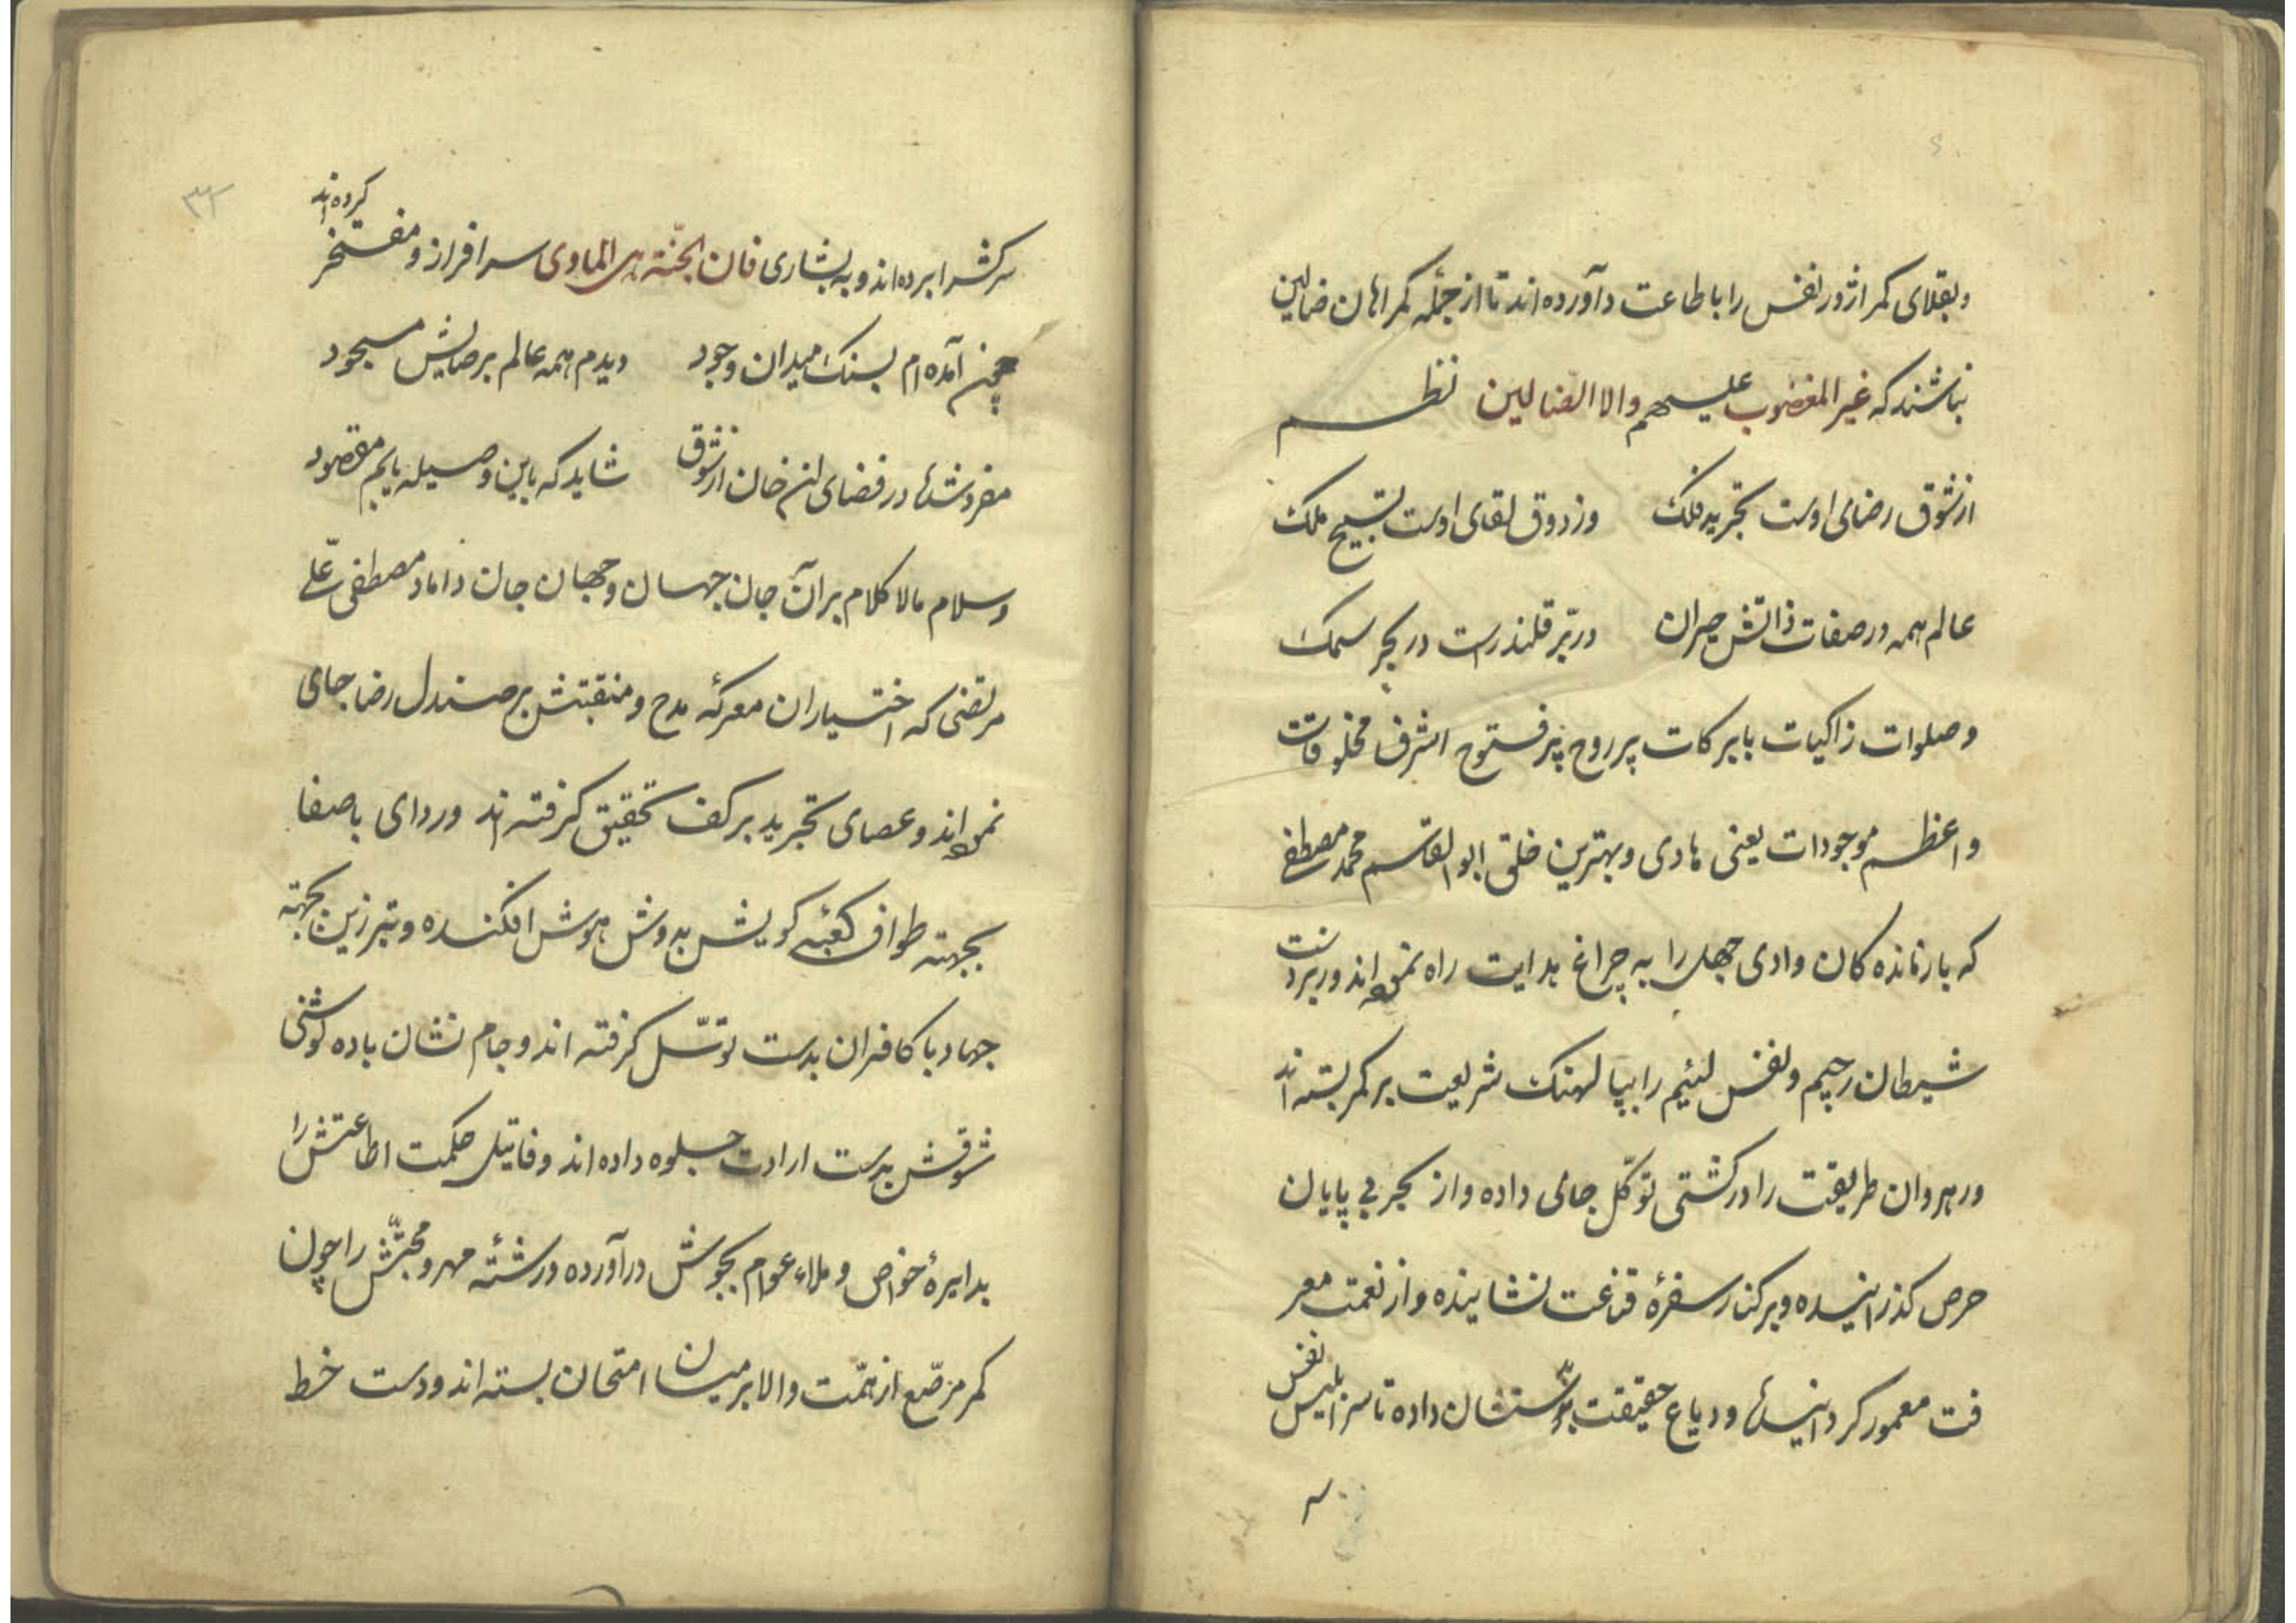 وبقلای کمر اژدر نفس را باطاعت دآورده اند تا از جمله کمراهان ضالین
نباشند که غیر المغضوب علیهم والا الضالین نظم
از شوق رضای اوست تجرید فلک وز ذوق لقای اوست تسبیح ملک
عالم همه در صفات ذاتش حیران در بر قلندرست در بحر سمک
وصلوات زاکیات بابرکات بر روح پر فتوح اشرف مخلوقات
واعظم موجودات یعنی هادی وبهترین خلق ابو القاسم محمد مصطفی
که بازمانده کان وادی جهل را به چراغ هدایت راه نموده اند و
شیطان رجیم ونفس لئیم را بپا لهنک شریعت بر کمر بسته اند
ورهروان طریقت را در کشتی توکل جای داده واز بحر بی پایان
حرص کذرانیده وبر کنار سفرهٔ قناعت نشانیده واز نعمت معر
فت معمور کردانیده ودباغ حقیقت داده تا سر ابلیس نفس
۳۲
سرکش را برده اند وبه بشاری فان الجنّة هی الماوی سرافراز ومفتخر کرده اند
چن آمده ام بسنک میدان وجود دیدم همه عالم برضایش مسجود
در فضای از شوق شاید که باین وصیله یابم مقصود
وسلام مالا کلام بر آن جان جهان وجهان جان داماد مصطفی علّی
مرتضی که اختیاران معرکهٔ مدح ومنقبتش بر صندل رضا جای
نموده اند وعصای تجرید بر کف تحقیق کرفته اند وردای باصفا
بجهته طواف کعبهٔ کویش بدوش هوش افکنده وتبرزین بجهته
جهاد با کافران بدست توسّل کرفته اند وجام نشان باده کوشی
شوقش بدست ارادت جلوه داده اند وفاتیل حکمت اطاعتش را
بدایرهٔ خواص وملاء عوام بجوش درآورده ورشتهٔ مهر ومحبّتش را چون
کمر مرصّع از همّت والا بر میان امتحان بسته اند ودست خط